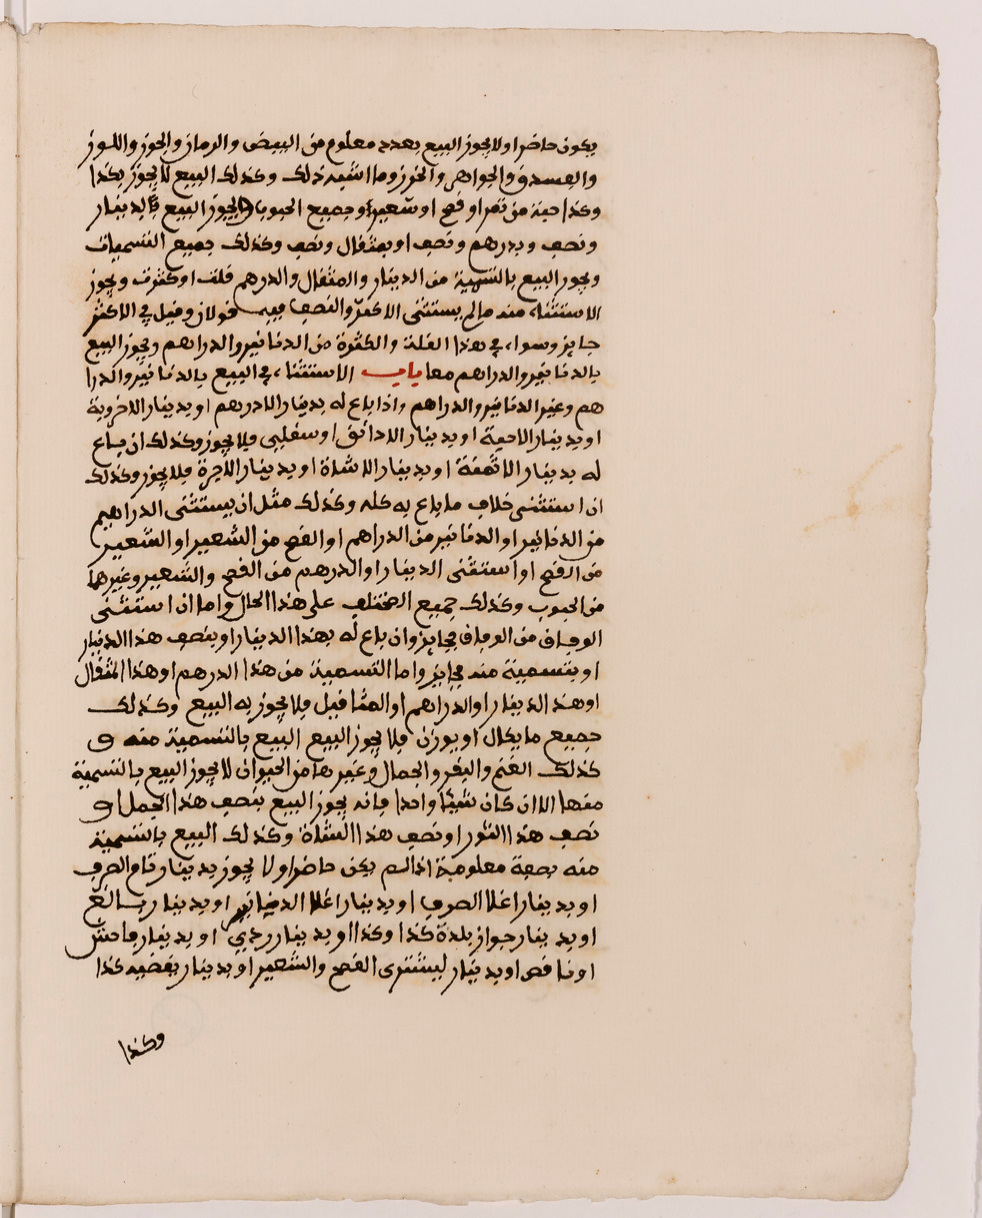 يكون حاضرا ولا يجوز البيع بعدد معلوم من البيض والرمان والجوز واللوز
والفستق والجواهر والخرز وما اشبه ذلك وكذلك البيع لا يجوز بكذا
وكذا حبة من تمر او قمح او شعير وجميع الحبوب ويجوز البيع بالدينار
ونصف وبدرهم ونصف او بمثقال ونصف وكذلك جميع التسميات
ويجوز البيع بالتسمية من الدينار والمثقال والدرهم قلت او كثرت ويجوز
الاستثناء منه ما لم يستثنى الاكثر والنصف فيه قولان وقيل في الاكثر
جايز وسواء في هذا القلة والكثرة من الدنانير والدراهم ويجوز البيع
بالدنانير والدراهم معا باب الاستثناء في البيع بالدنانير والدرا
هم وغير الدنانير والدراهم واذا باع له بدينار الا درهم او بدينار الا خروبة
او بدينار الا حبة او بدينار الا دانق او سفلين فلا يجوز وكذلك ان باع
له بدينار الا ثمنة او بدينار الا شاة او بدينار الا جرة فلا يجوز وكذلك
ان استثنى خلاف ما باع به كله وكذلك مثل ان يستثنى الدراهم
من الدنانير او الدنانير من الدراهم او القمح من الشعير او الشعير
من القمح او استثنى الدينار او الدرهم من القمح والشعير وغيرها
من الحبوب وكذلك جميع المختلف على هذا الحال واما ان استثنى
الوفاق من الوفاق فجايز وان باع له بهذا الدينار او بنصف هذا الدينار
او بتسمية منه فجايز واما التسمية من هذا الدرهم او هذا المثقال
او هذا الدينار او الدراهم او المثاقيل فلا يجوز به البيع وكذلك
جميع ما يكال او يوزن فلا يجوز البيع البيع بالتسمية منه و
كذلك الغنم والبقر والجمال وغيرها من الحيوان لا يجوز البيع بالتسمية
منها الا ان كان شيئا واحدا فانه يجوز البيع بنصف هذا الجمل او
نصف هذا الثور او نصف هذا الشاة وكذلك البيع بالتسمية
منه بصفة معلومة اذا لم يكن حاضرا ولا يجوز بدينار قام الصرف
او بدينار اغلا الصرف او بدينار اغلا الدنانير او بدينار بالغ
او بدينار جواز بلدة كذا وكذا او بدينار ردي او بدينار فاحش
او ناقص او بدينار ليشترى القمح والشعير او بدينار بقضيه كذا
وكذا